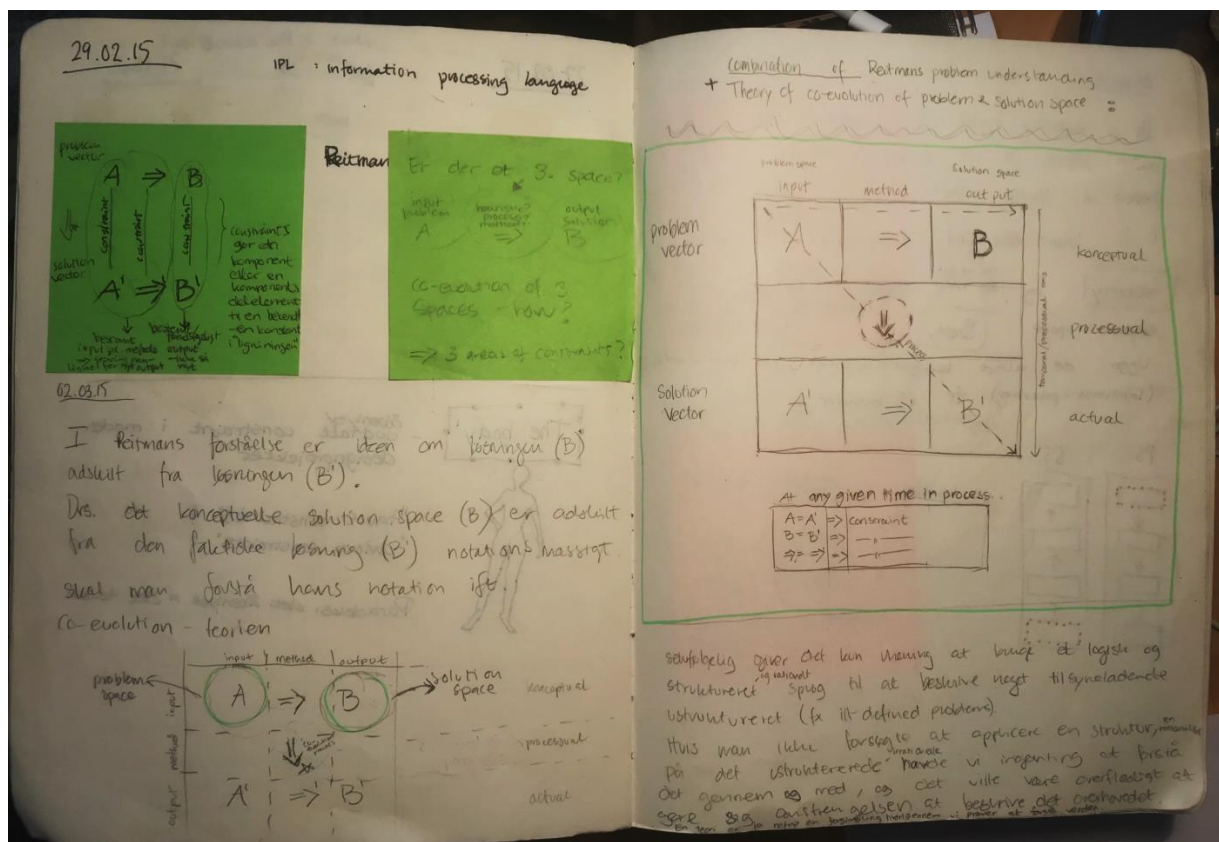 29.02.15
IPL : information processing language
problem
vector
A ⇒ B
constraint
constraint
constraint
solution
vector
A' ⇒ B'
constraints
gør en
komponent
eller en
komponents
delelement
til en bekendt
- en konstant
i "ligningen"
input
output
Reitman
Er der et 3. space?
input
problem
output
solution
A ⇒ B
co-evolution of 3
spaces - how?
⇒ 3 areas of constraints?
02.03.15
I Reitmans forståelse er ideen om løsningen (B)
adskilt fra løsningen (B').
Dvs. det konceptuelle solution space (B) er adskilt
fra den faktiske løsning (B') notationsmæssigt.
skal man forstå hans notation ift.
co-evolution - teorien
input method output
problem
space
A ⇒ B
solution
space
konceptual
input
method
⇓
processual
output
A' ⇒ B'
actual
combination of Reitmans problem understanding
+ Theory of co-evolution of problem & solution space :
problem space
solution space
input method output
problem
vector
A ⇒ B
konceptual
⇓
processual
Solution
Vector
A' ⇒ B'
actual
temporal/processual axis
At any given time in process.
A = A' => constraint
B = B' => -"-
=> = => => -"-
selvfølgelig giver det kun mening at bruge et logisk og
og rationelt
struktureret sprog til at beskrive noget tilsyneladende
ustruktureret (fx ill-defined problems).
Hvis man ikke forsøgte at applicere en struktur,
irrationale
på det ustrukturerede havde vi ingenting at forstå
det gennem og med, og det ville være overflødigt at
gøre sig anstrengelsen at beskrive det overhovedet.